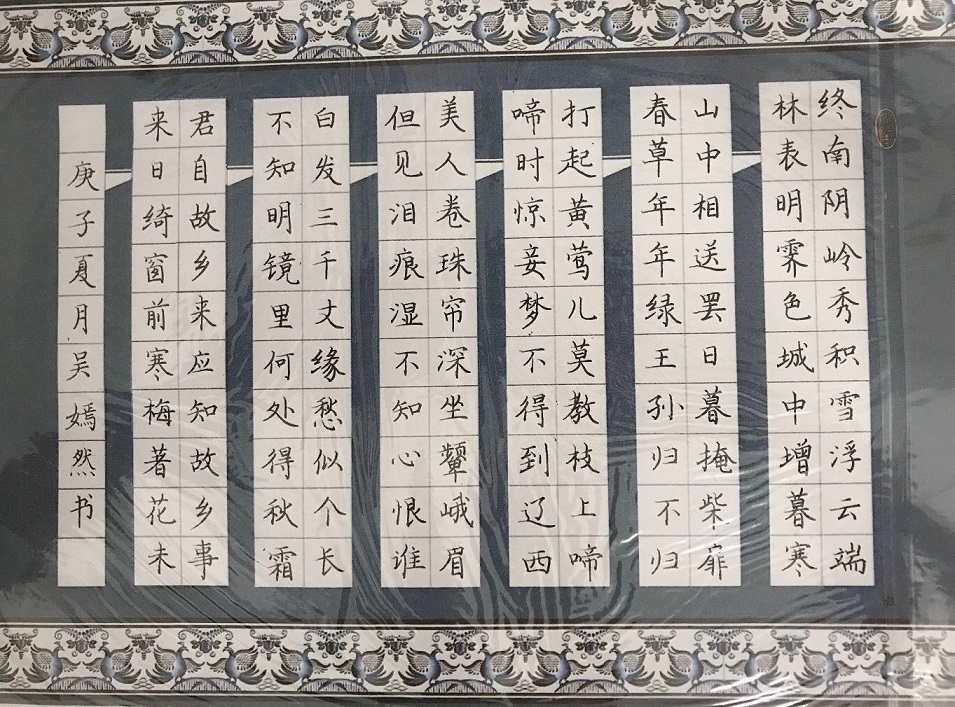 终南阴岭秀积雪浮云端
林表明霁色城中增暮寒
山中相送罢日暮掩柴扉
春草年年绿王孙归不归
打起黄莺儿莫教枝上啼
啼时惊妾梦不得到辽西
美人卷珠帘深坐颦峨眉
但见泪痕湿不知心恨谁
白发三千丈缘愁似个长
不知明镜里何处得秋霜
君自故乡来应知故乡事
来日绮窗前寒梅著花未
庚子夏月吴嫣然书